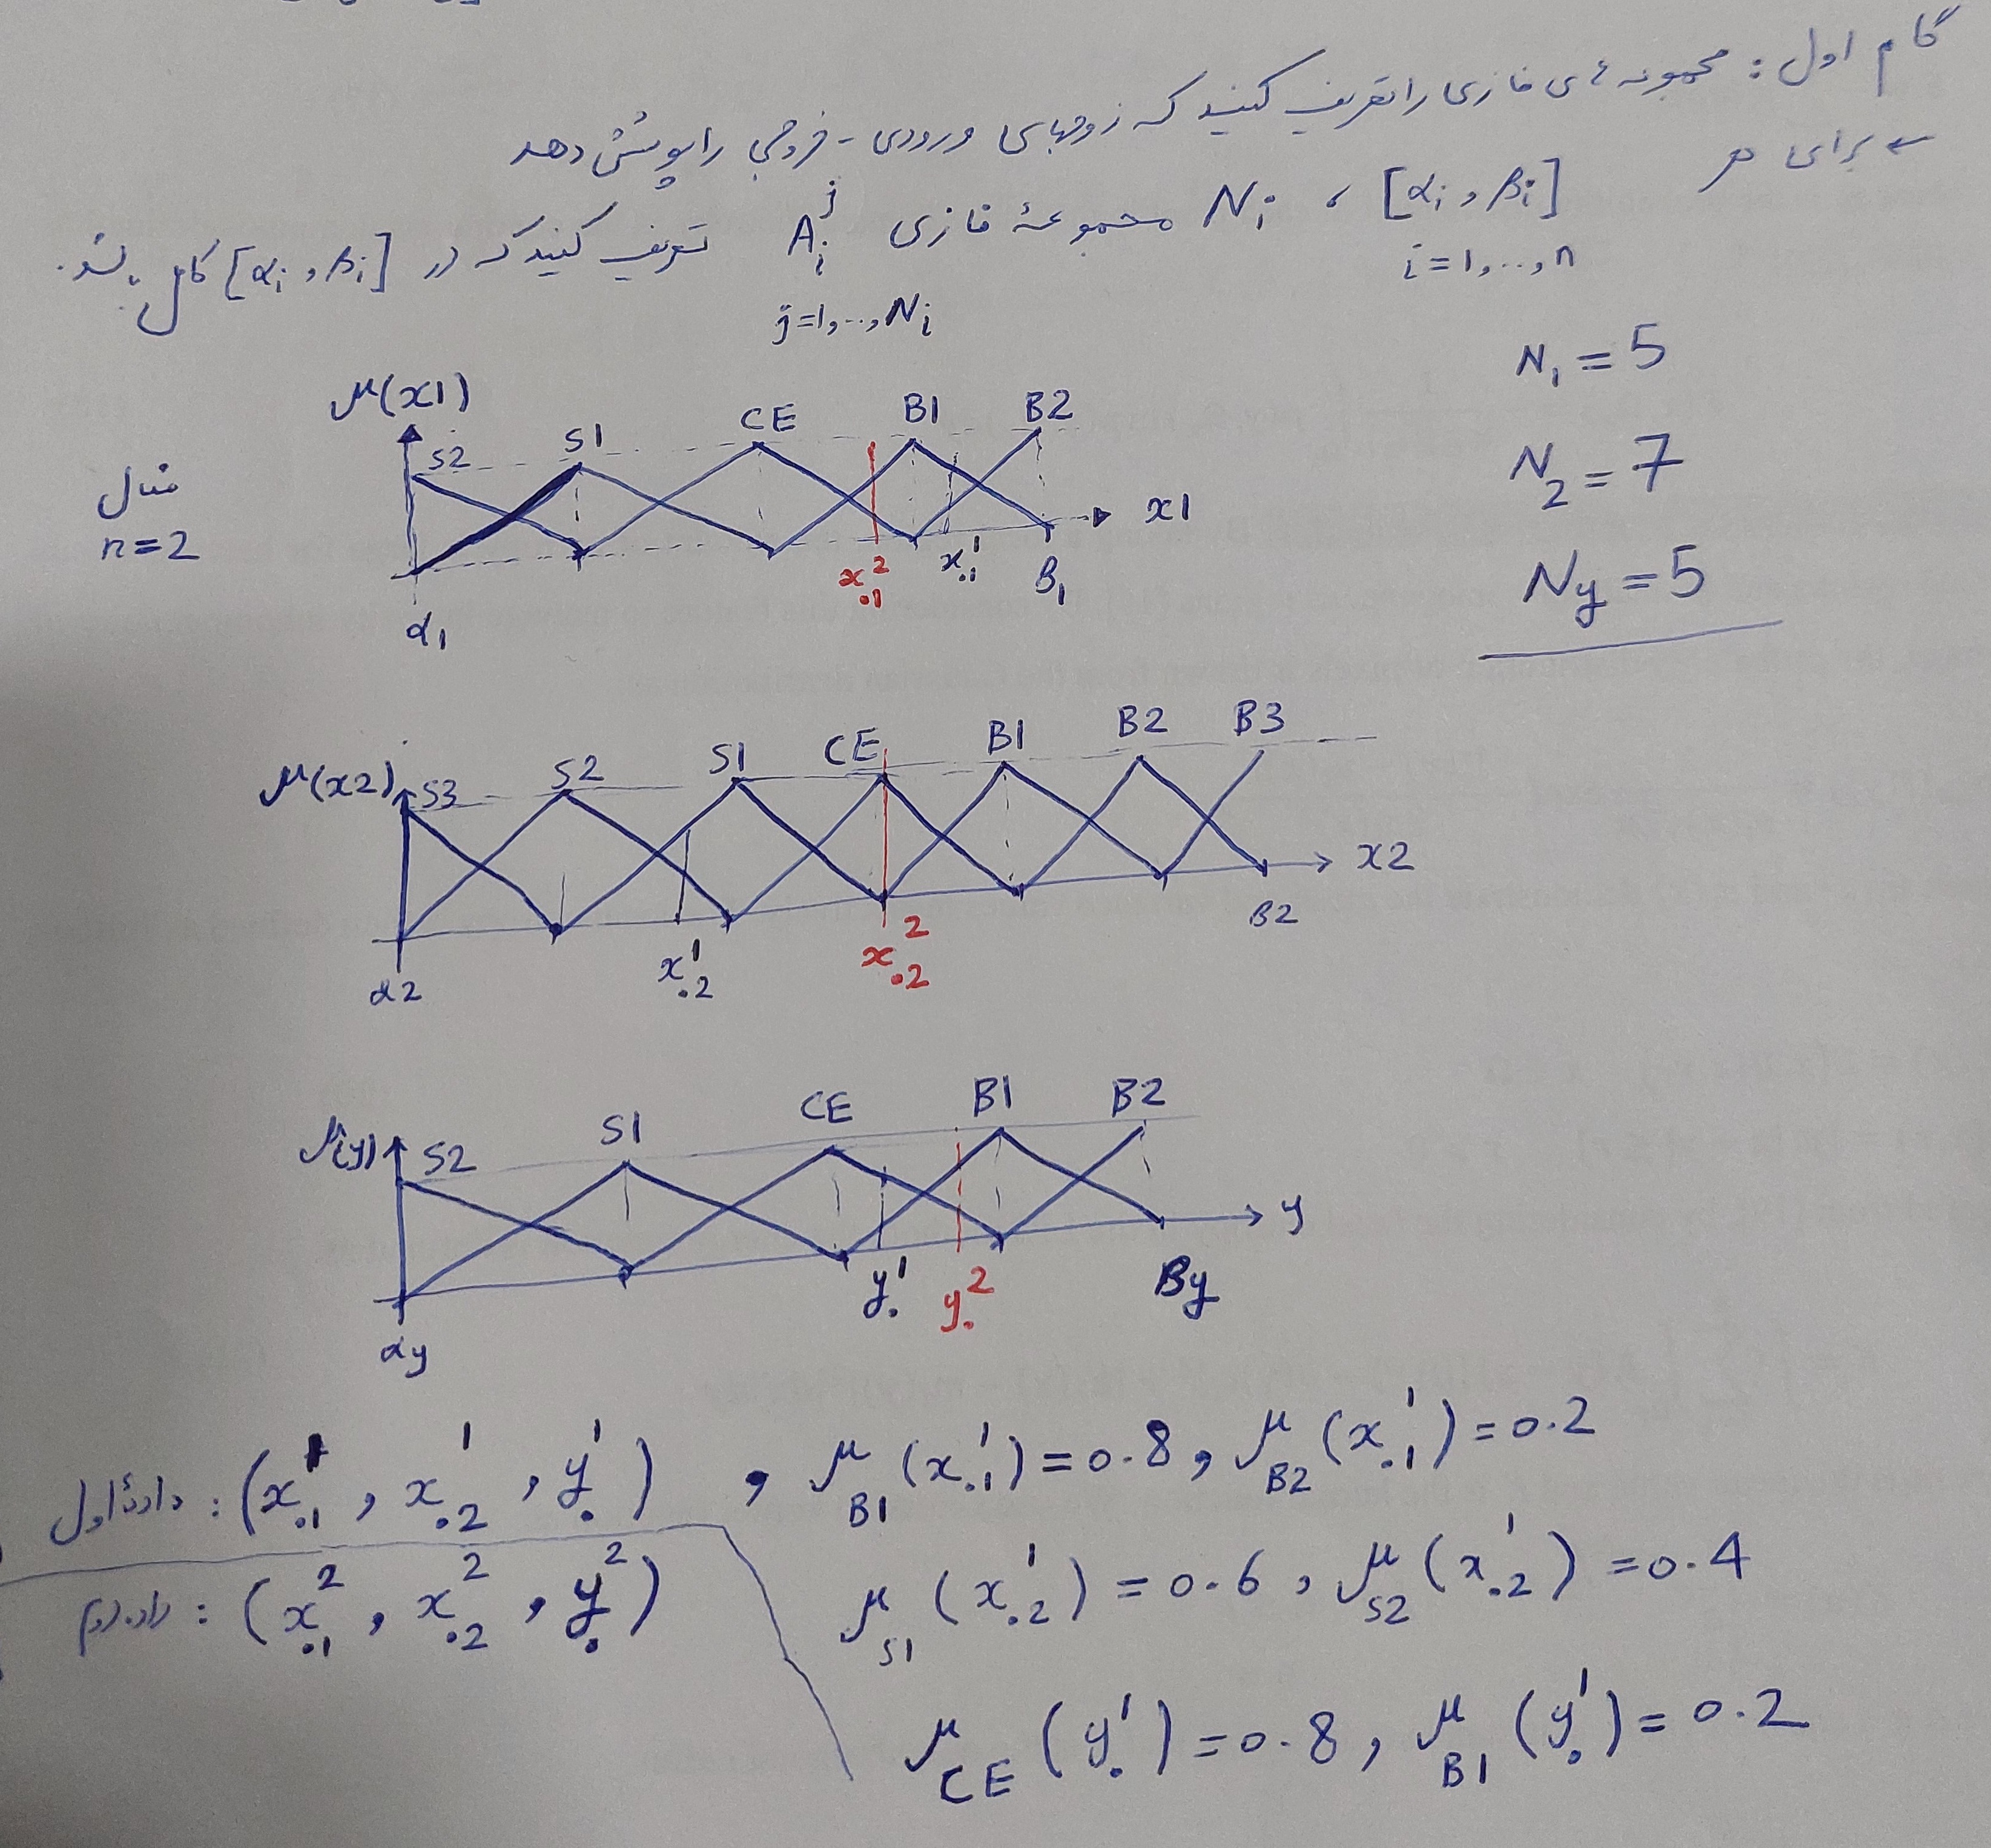 گام اول : مجموعه های فازی را تعریف کنید که زوجهای ورودی - خروجی را پوشش دهد
← برای هر [αi , βi] ، Ni مجموعهٔ فازی Aᵢʲ تعریف کنید که در [αi , βi] کامل باشد.
i=1,...,n
j=1,...,Ni
N1 = 5
N2 = 7
Ny = 5
مثال
n=2
μ(x1)
S2 S1 CE B1 B2
x1
α1 x₀₁² x₀₁¹ β1
μ(x2)
S3 S2 S1 CE B1 B2 B3
x2
α2 x₀₂¹ x₀₂² β2
μ(y)
S2 S1 CE B1 B2
y
αy y₀¹ y₀² βy
دادهٔ اول : (x₀₁¹ , x₀₂¹ , y₀¹) , μ_B1(x₀₁¹) = 0.8 , μ_B2(x₀₁¹) = 0.2
داده دوم : (x₀₁² , x₀₂² , y₀²)
μ_S1(x₀₂¹) = 0.6 , μ_S2(x₀₂¹) = 0.4
μ_CE(y₀¹) = 0.8 , μ_B1(y₀¹) = 0.2